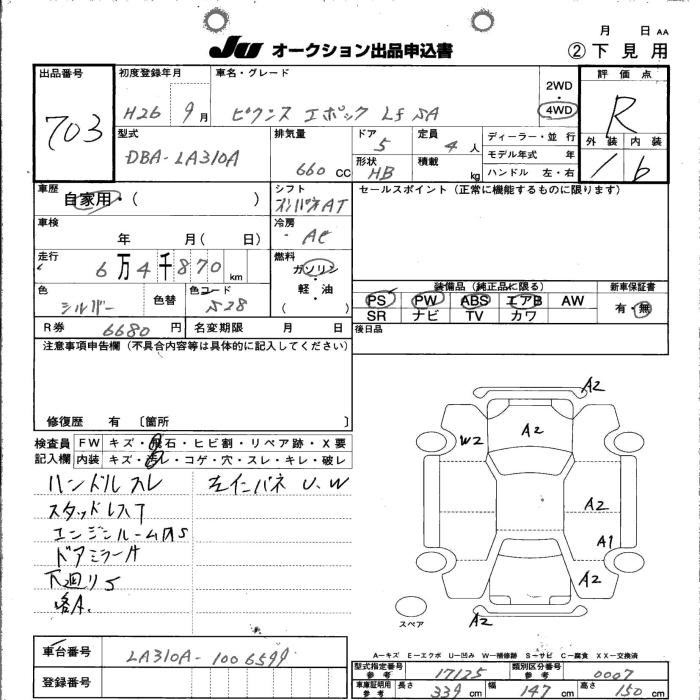 月 日 AA
JU オークション出品申込書
② 下見用
出品番号
703
初度登録年月
H26 9月
車名・グレード
ピクシス エポック Lf SA
2WD
・
4WD
評価点
R
外装 内装
1 6
型式
DBA-LA310A
排気量
660 CC
ドア
5
定員
4 人
形状
HB
積載
kg
ディーラー・並行
モデル年式 年
ハンドル 左・右
車歴
自家用・( )
シフト
インパネAT
セールスポイント (正常に機能するものに限ります)
車検
年 月( 日)
冷房
AC
走行
6万4千870km
燃料
ガソリン
・
軽・油
( )
色
シルバー
色替
色コード
S28
装備品 (純正品に限る)
PS PW ABS エアB AW
SR ナビ TV カワ
新車保証書
有・無
R券 6680円
名変期限 月 日
後日品
注意事項申告欄(不具合内容等は具体的に記入してください)
修復歴 有 〔箇所 〕
検査員
記入欄
FW キズ・飛石・ヒビ割・リペア跡・X要
内装 キズ・汚レ・コゲ・穴・スレ・キレ・破レ
ハンドルスレ
左インパネ U、W
スタッドレスT
エンジンルーム内S
ドアミラーA
下廻りS
各A.
A2
W2
A2
A2
A1
A2
A2
スペア
A-キズ E-エクボ U-凹み W-補修跡 S-サビ C-腐食 XX-交換済
車台番号
LA310A-1006599
登録番号
型式指定番号
参考
17125
類別区分番号
参考
0007
車庫証明用
参考
長さ 339 cm
幅 147 cm
高さ 150 cm